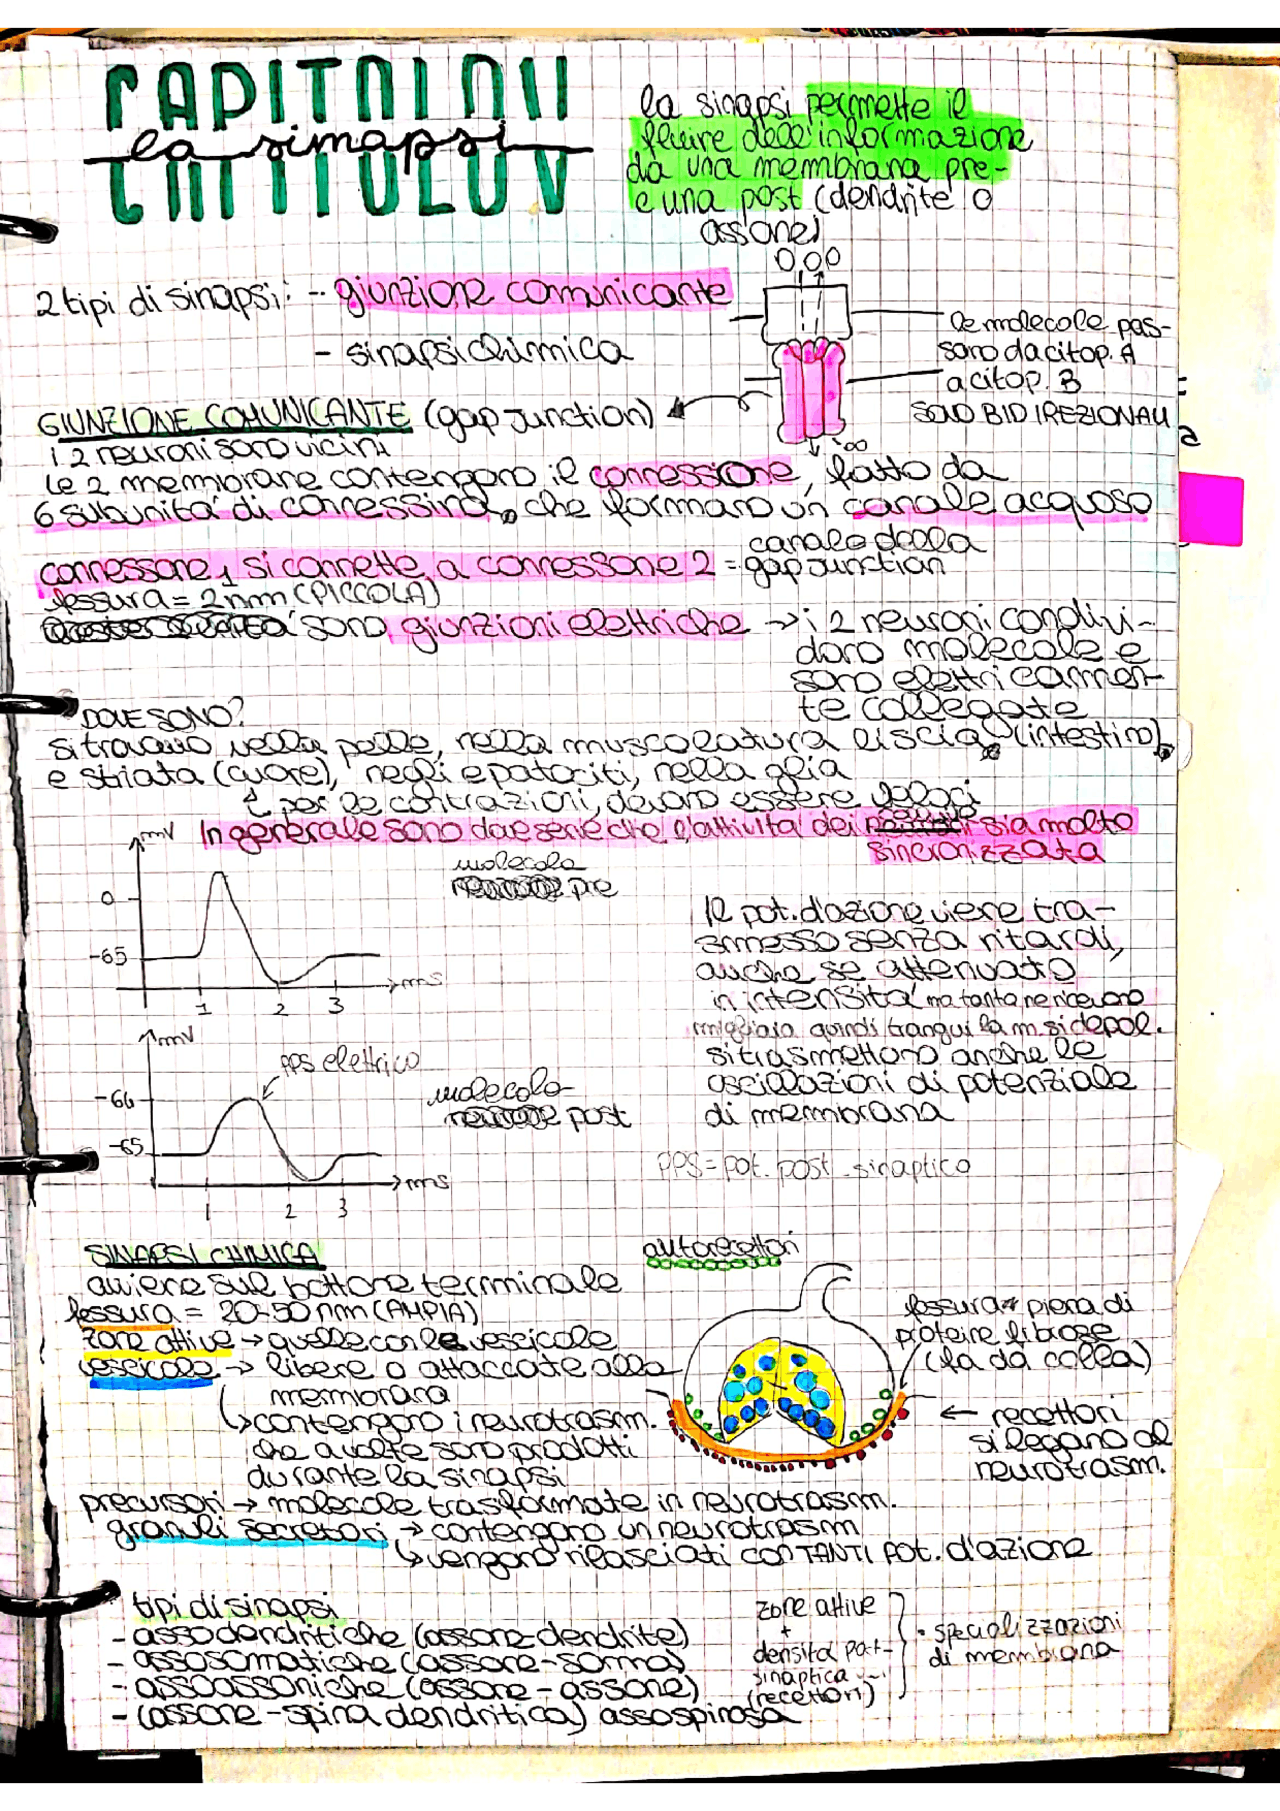 CAPITOLO V
la sinapsi
la sinapsi permette il
fluire dell'informazione
da una membrana pre-
e una post (dendrite o
assone)
2 tipi di sinapsi: - giunzione comunicante
- sinapsi chimica
le molecole pas-
sano da citop. A
a citop. B
SONO BIDIREZIONALI
GIUNZIONE COMUNICANTE (gap junction)
i 2 neuroni sono vicini
le 2 membrane contengono il connessione, fatto da
6 subunità di connessina, che formano un canale acquoso
connessone 1 si connette a connessone 2 = canale della
gap junction
fessura = 2nm (PICCOLA)
sono giunzioni elettriche → i 2 neuroni condivi-
dono molecole e
sono elettricamen-
te collegate
DOVE SONO?
si trovano nella pelle, nella muscolatura liscia (intestino),
e striata (cuore), negli epatociti, nella glia
↳ per le contrazioni, devono essere veloci
In generale sono dove serve che l'attività dei neuroni sia molto
sincronizzata
mV
0
-65
1 2 3
ms
molecola
pre
Il pot. d'azione viene tra-
smesso senza ritardi,
anche se attenuato
in intensità ma tanto ne ricevono
migliaia quindi tranqui la m. si depol.
si trasmettono anche le
oscillazioni di potenziale
di membrana
mV
PPS elettrico
-64
-65
1 2 3
ms
molecola
post
PPS = pot. post-sinaptico
SINAPSI CHIMICA
avviene sul bottone terminale
fessura = 20-50 nm (AMPIA)
zone attive → quelle con le vescicole
vescicole → libere o attaccate alla
membrana
↳ contengono i neurotrasm.
che a volte sono prodotti
durante la sinapsi
precursori → molecole trasformate in neurotrasm.
granuli secretori → contengono un neurotrasm
↳ vengono rilasciati con TANTI pot. d'azione
autorecettori
fessura piena di
proteine fibrose
(fa da colla)
← recettori
si legano al
neurotrasm.
tipi di sinapsi
- assodendritiche (assone-dendrite)
- assosomatiche (assone-soma)
- assoassoniche (assone-assone)
- (assone-spina dendritica) assospinosa
zone attive
+
densità post-
sinaptica
(recettori)
• specializzazioni
di membrana